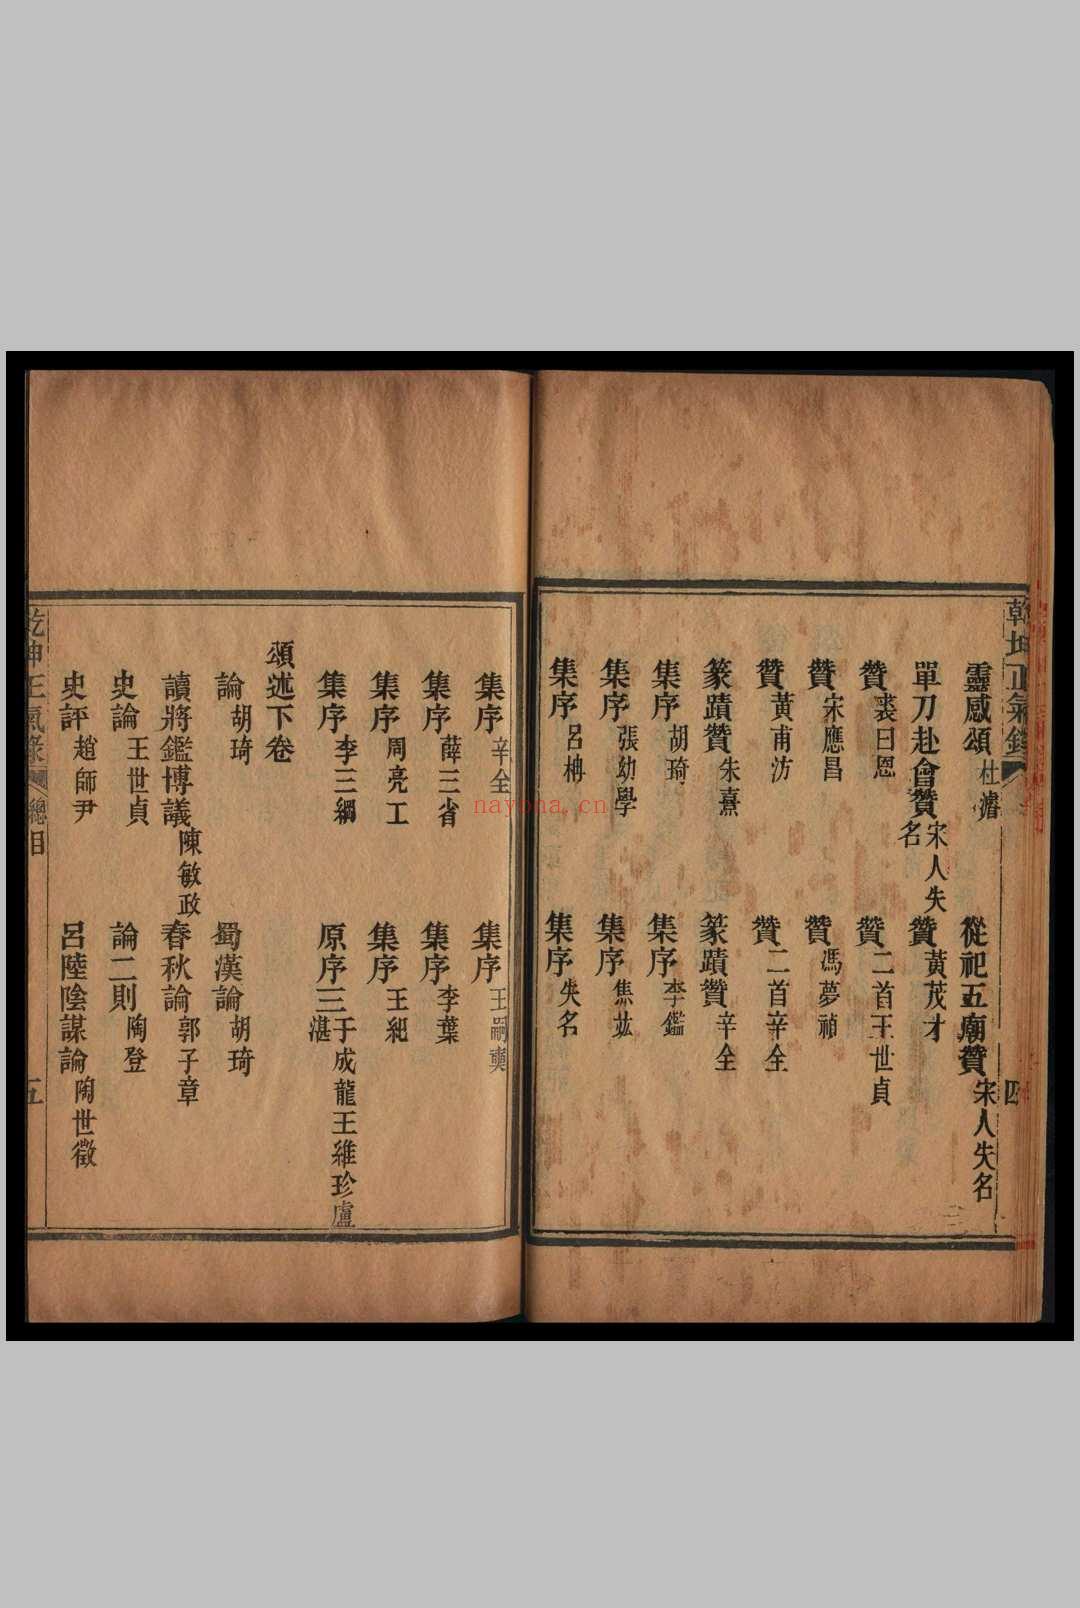 乾坤正氣錄
四
靈感頌 杜濬 從祀五廟贊 宋人失名
單刀赴會贊 宋人失名 贊 黃茂才
贊 裘曰恩 贊二首 王世貞
贊 宋應昌 贊 馮夢禎
贊 黃甫汸 贊二首 辛全
篆蹟贊 朱熹 篆蹟贊 辛全
集序 胡琦 集序 李鑑
集序 張幼學 集序 焦竑
集序 呂柟 集序 失名
集序 辛全 集序 王嗣奭
集序 薛三省 集序 李葉
集序 周亮工 集序 王紀
集序 李三綱 原序三 于成龍 王維珍 盧湛
頌述下卷
論 胡琦 蜀漢論 胡琦
讀將鑑博議 陳敏政 春秋論 郭子章
史論 王世貞 論二則 陶登
史評 趙師尹 呂陸陰謀論 陶世徵
乾坤正氣錄 總目
五
nayona.cn